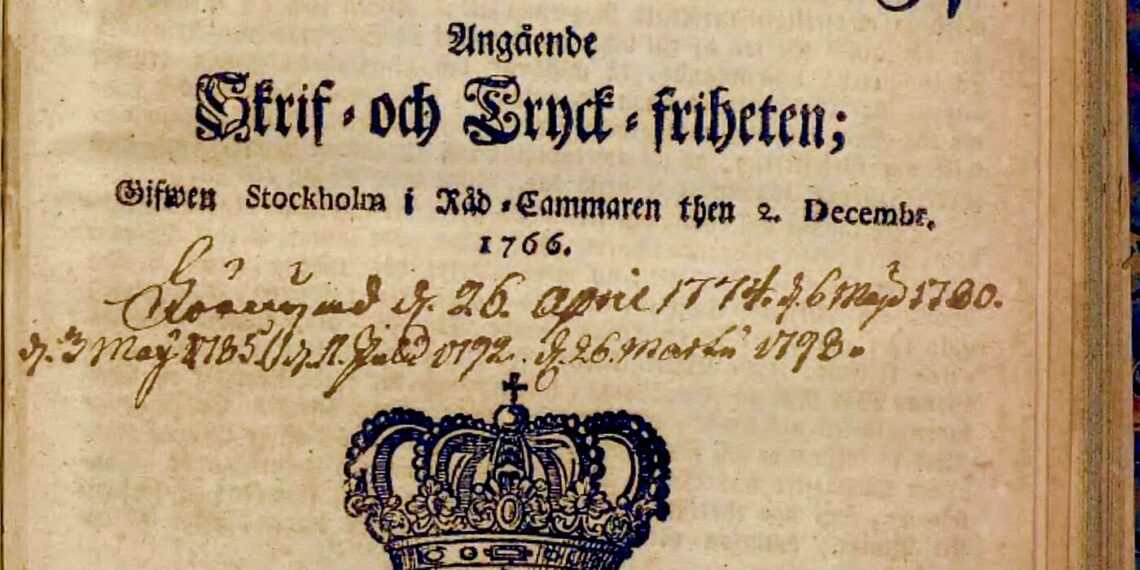 Angående
Skrif-och Tryck-friheten;
Gifwen Stockholm i Råd-Cammaren then 2. Decembr.
1766.
d. 26. april 1774. d. 6 Maji 1780.
d. 3 May 1785 d. 11. Julii 1792. d. 26. Martii 1798.